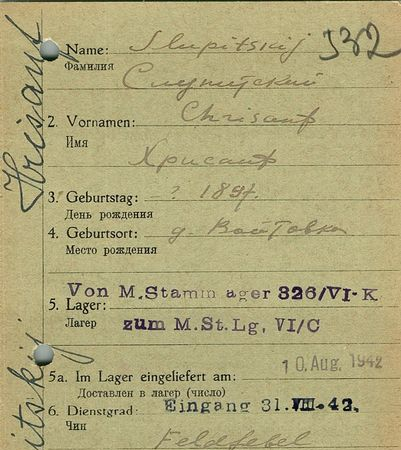 Name: Slupitskij 532
Фамилия Слупитский
2. Vornamen: Chrisanf
Имя
Хрисанф
3. Geburtstag: ? 1897.
День рождения
4. Geburtsort: д. Войтовка
Место рождения
Von M.Stamm ager 326/VI-K
5. Lager:
Лагер zum M.St.Lg, VI/C
10. Aug. 1942
5a. Im Lager eingeliefert am:
Доставлен в лагер (число)
6. Dienstgrad: Eingang 31.VII.42.
Чин
Feldfebel
Hrisanf
itskij